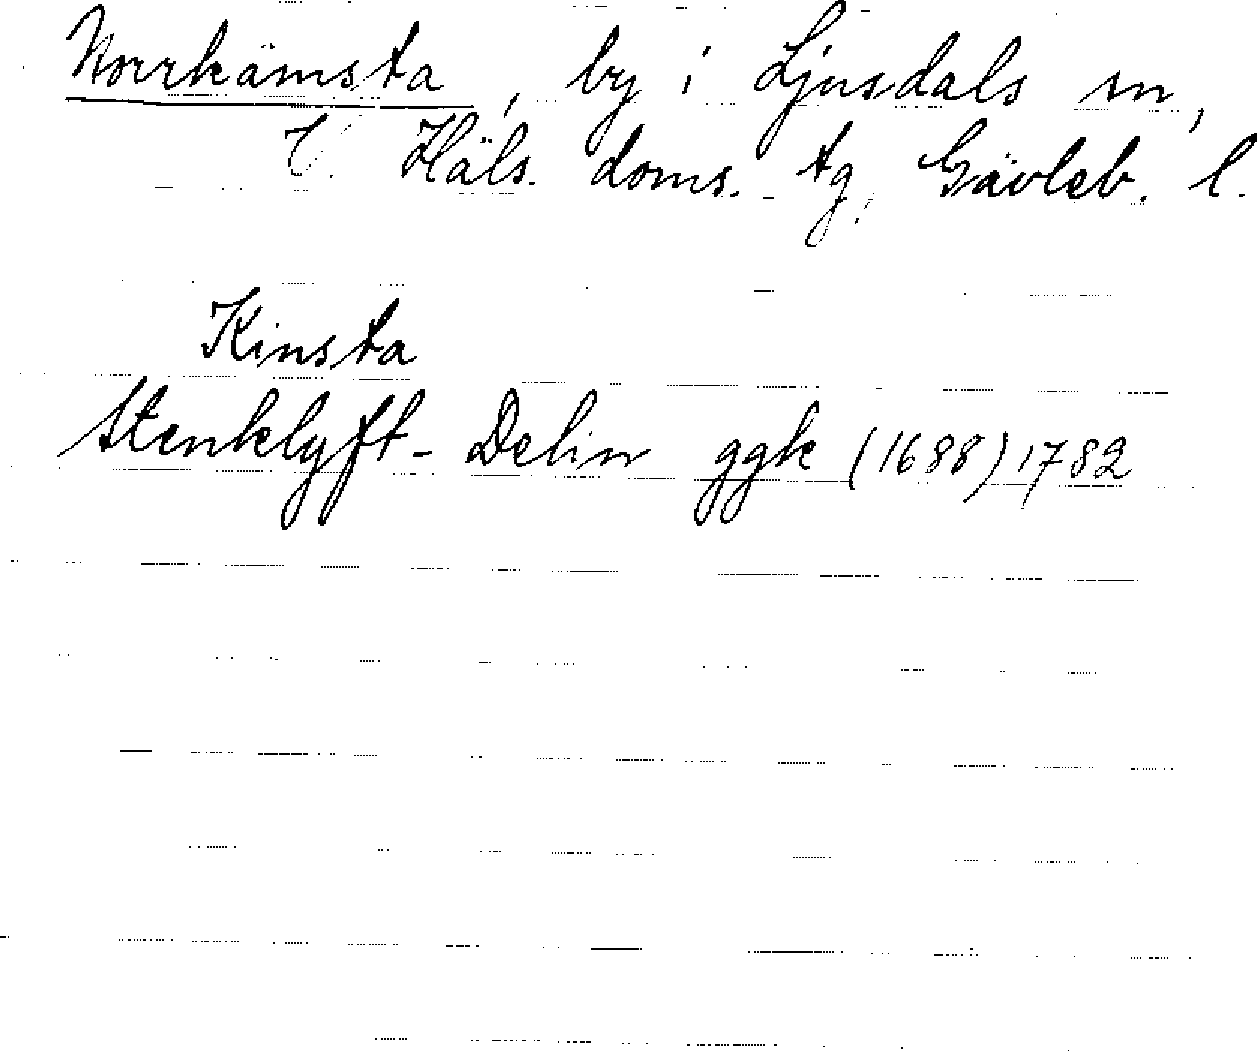 Norrkämsta, by i Ljusdals sn,
V. Häls. doms. tg, Gävleb. l.
Kinsta
Stenklyft- Delin ggk (1688) 1782